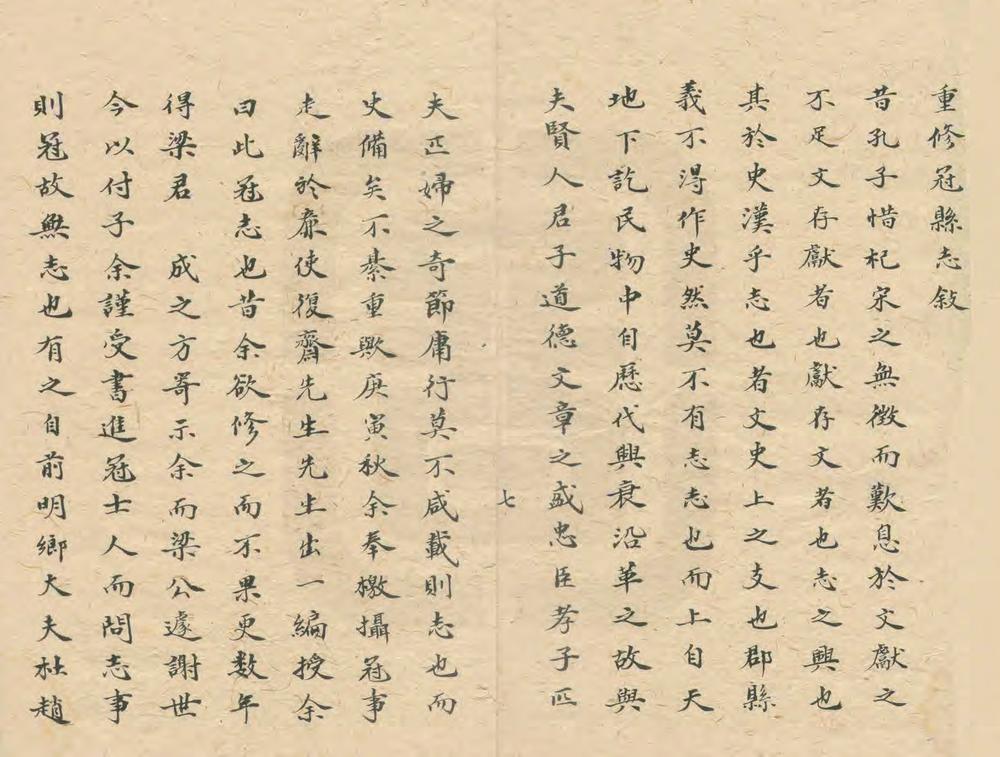 重修冠縣志敘
昔孔子惜杞宋之無徴而歎息於文獻之
不足文存獻者也獻存文者也志之興也
其於史漢乎志也者文史上之支也郡縣
義不得作史然莫不有志志也而上自天
地下訖民物中自歷代興衰沿革之故與
夫賢人君子道德文章之盛忠臣孝子匹
七
夫匹婦之奇節庸行莫不咸載則志也而
史備矣不綦重歟庚寅秋余奉檄攝冠事
走辭於廉使復齋先生先生出一編授余
曰此冠志也昔余欲修之而不果更数年
得梁君 成之方寄示余而梁公遽謝世
今以付子余謹受書進冠士人而問志事
則冠故無志也有之自前明鄉大夫杜趙